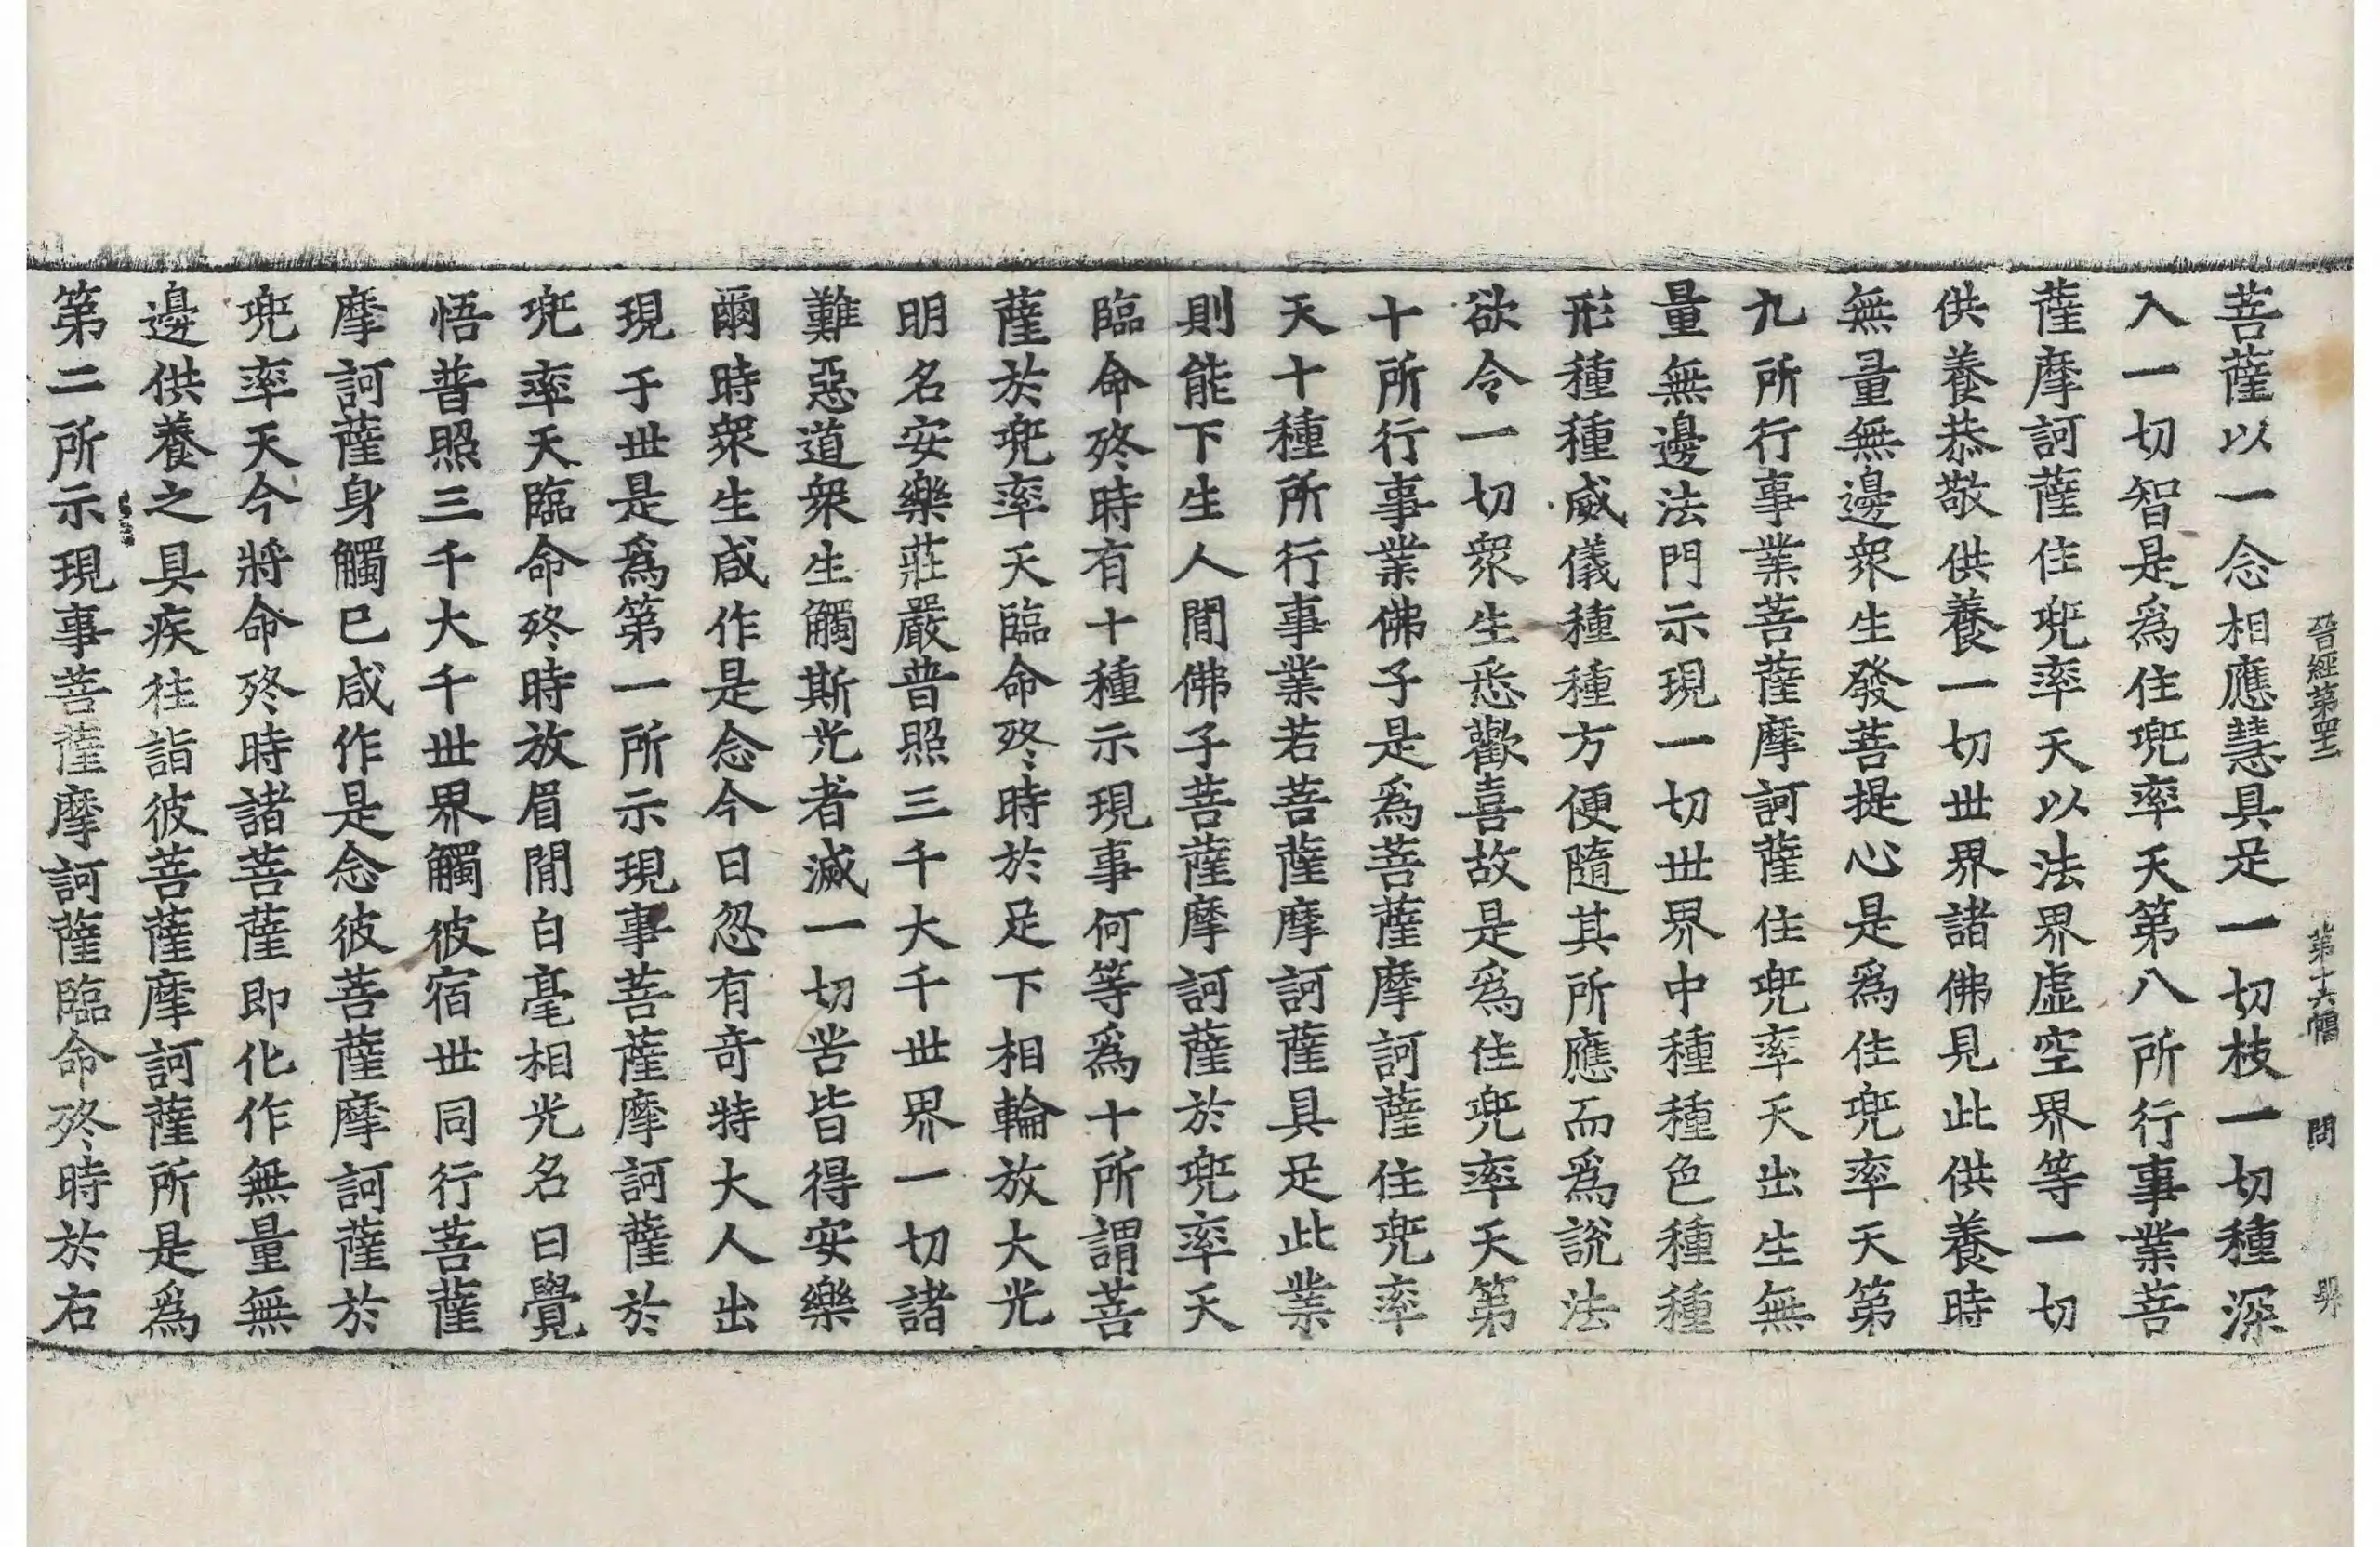 晉經第四十二 第十六幅 問
菩薩以一念相應慧具足一切枝一切種深
入一切智是為住兜率天第八所行事業菩
薩摩訶薩住兜率天以法界虛空界等一切
供養恭敬供養一切世界諸佛見此供養時
無量無邊眾生發菩提心是為住兜率天第
九所行事業菩薩摩訶薩住兜率天出生無
量無邊法門示現一切世界中種種色種種
形種種威儀種種方便隨其所應而為說法
欲令一切眾生悉歡喜故是為住兜率天第
十所行事業佛子是為菩薩摩訶薩住兜率
天十種所行事業若菩薩摩訶薩具足此業
則能下生人閒佛子菩薩摩訶薩於兜率天
臨命終時有十種示現事何等為十所謂菩
薩於兜率天臨命終時於足下相輪放大光
明名安樂莊嚴普照三千大千世界一切諸
難惡道眾生觸斯光者滅一切苦皆得安樂
爾時眾生咸作是念今日忽有奇特大人出
現于世是為第一所示現事菩薩摩訶薩於
兜率天臨命終時放眉閒白毫相光名曰覺
悟普照三千大千世界觸彼宿世同行菩薩
摩訶薩身觸已咸作是念彼菩薩摩訶薩於
兜率天今將命終時諸菩薩即化作無量無
邊供養之具疾往詣彼菩薩摩訶薩所是為
第二所示現事菩薩摩訶薩臨命終時於右